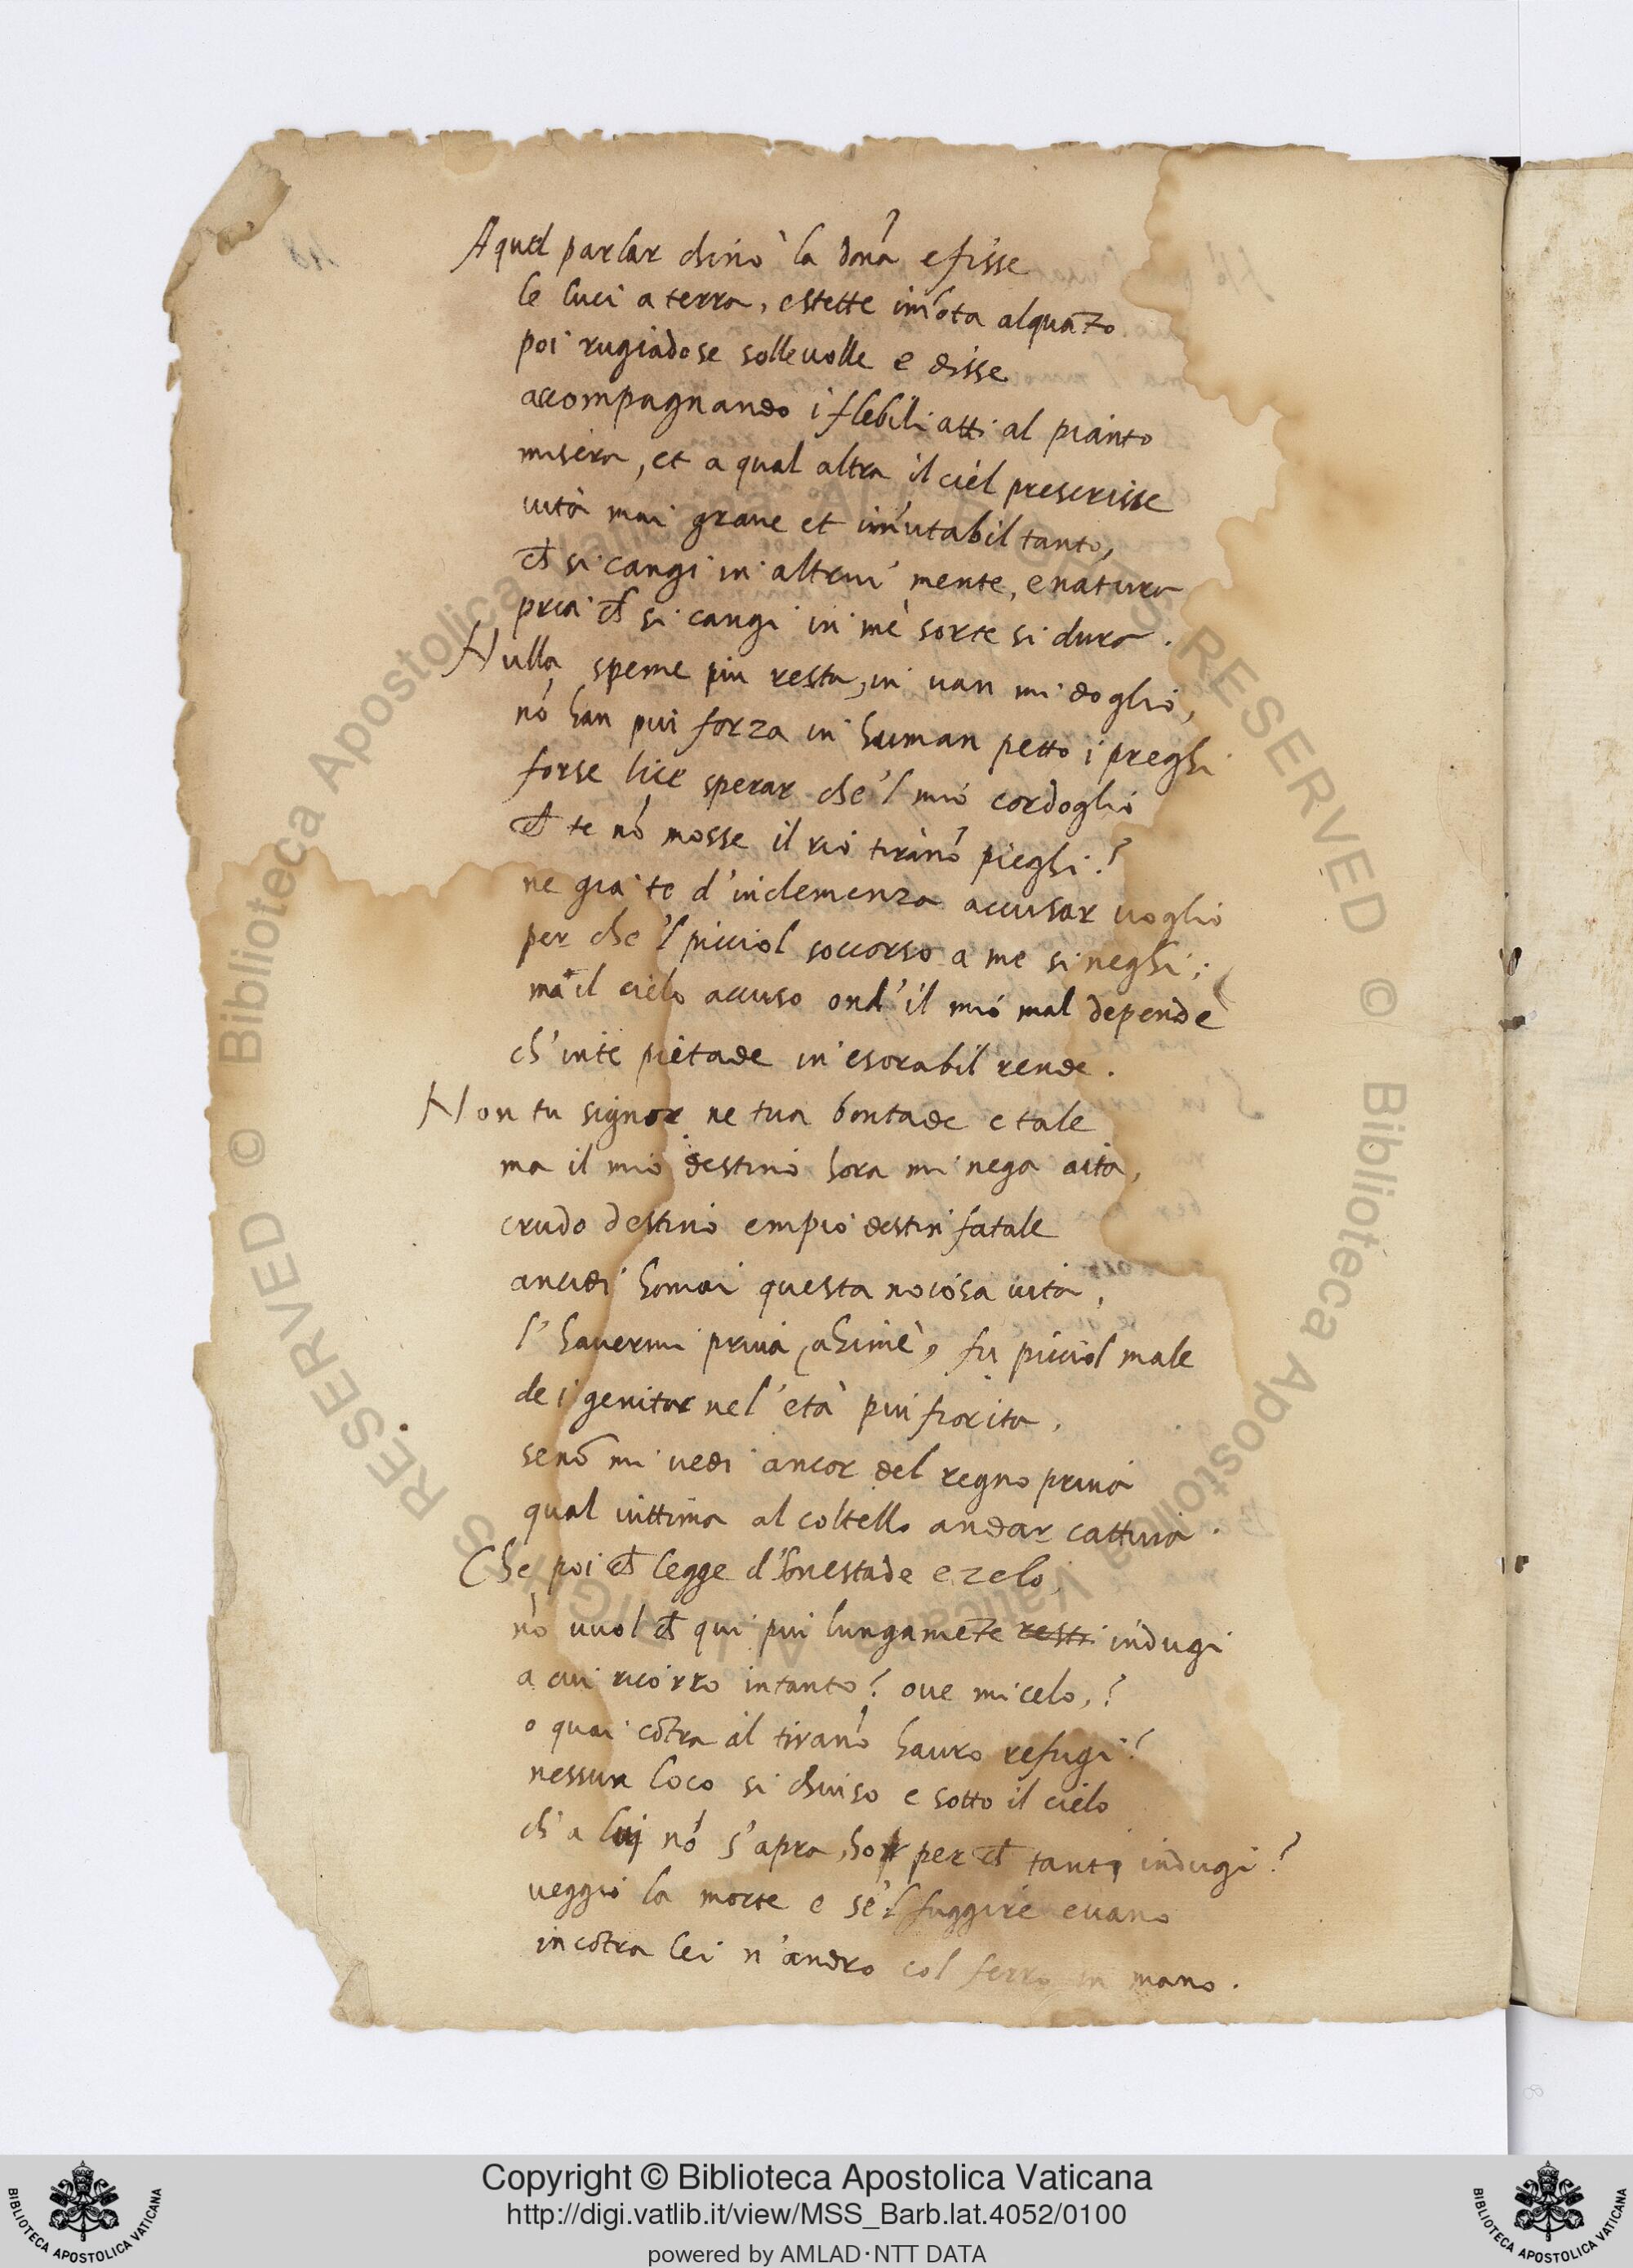 A quel parlar chinò la don̄a e fisse
le luci a terra, e stette im̄ota alquāto
poi rugiadose sollevolle e disse
accompagnando i flebili atti al pianto
misera, et a qual altra il ciel prescrisse
vita mai grave et im̄utabil tanto,
ch̄ si cangi in altrui mente, e natura
pria ch̄ si cangi in me sorte si dura.
Nulla speme piu resta, in van mi doglio,
nō han piu forza in human petto i preghi
forse lice sperar che'l mio cordoglio
ch̄ te nō mosse il rio tiran̄o pieghi?
ne gia te d'inclemenza accusar voglio
per che'l picciol soccorso a me si neghi;
ma il cielo accuso ond'il mio mal depende
ch'in te pietade inesorabil rende.
Non tu signor ne tua bontade e tale
ma il mio destino hora mi nega aita,
crudo destino empio destin fatale
ancidi homai questa noiosa vita,
l'havermi priva, ahimè, fu picciol male
de i genitor nel'età piu fiorita,
se nō mi vedi ancor del regno priva
qual vittima al coltello andar cattiva.
Che poi ch̄ legge d'honestade e zelo
nō vuol ch̄ qui piu lungamēte resti indugi
a cui ricorro intanto? ove mi celo,?
o quai cōtra il tiran̄o havro refugi?
nessun loco si chiuso e sotto il cielo
ch'a lui nō s'apra, hor per ch̄ tanti indugi?
veggio la morte e se'l fuggire e vano
incōtra lei n'andro col ferro in mano.
Copyright © Biblioteca Apostolica Vaticana
http://digi.vatlib.it/view/MSS_Barb.lat.4052/0100
powered by AMLAD·NTT DATA
BIBLIOTECA APOSTOLICA VATICANA
BIBLIOTECA APOSTOLICA VATICANA
Biblioteca Apostolica Vaticana ALL RIGHTS RESERVED ©
Biblioteca Apostolica Vaticana ALL RIGHTS RESERVED ©